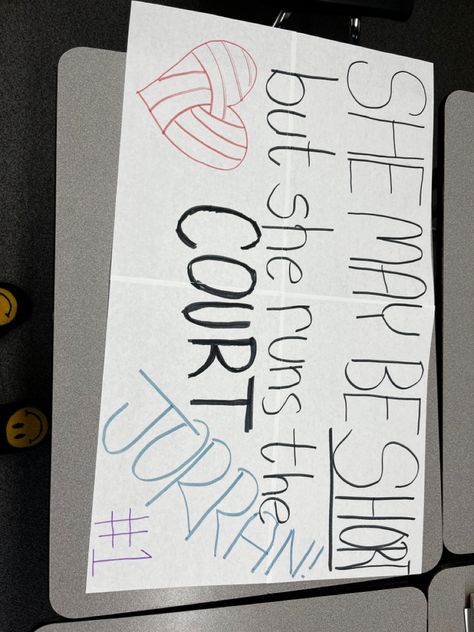 SHE MAY BE SHORT
but she runs the
COURT
JORRAN!!
#1